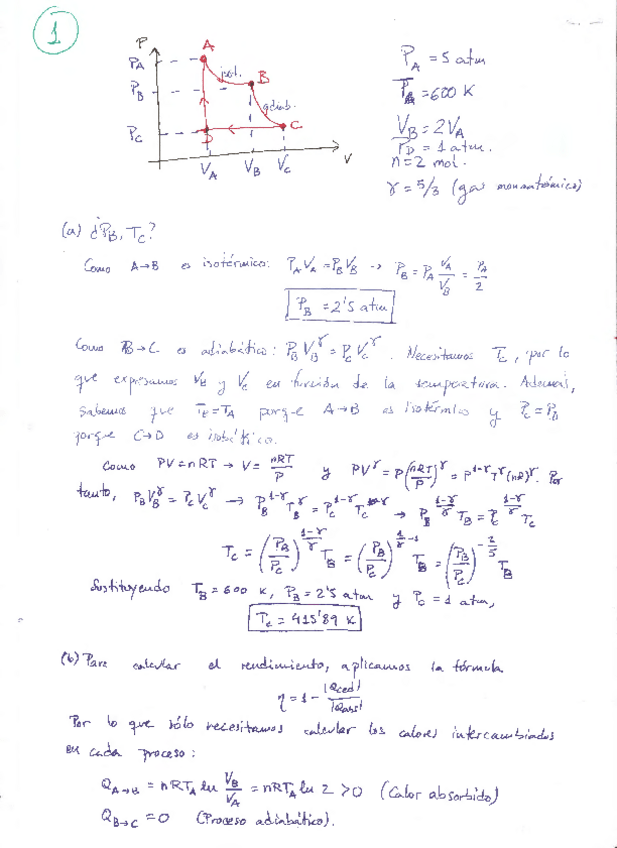 1
P
P_A
P_B
P_C
A
isot.
B
adiab.
C
D
V_A
V_B
V_C
V
P_A = 5 atm
T_A = 600 K
V_B = 2V_A
P_D = 1 atm.
n = 2 mol.
γ = 5/3 (gas monoatómico)
(a) ¿P_B, T_C?
Como A→B es isotérmico: P_A V_A = P_B V_B → P_B = P_A V_A/V_B = P_A/2
P_B = 2'5 atm
Como B→C es adiabático: P_B V_B^γ = P_C V_C^γ. Necesitamos T_C, por lo
que expresamos V_B y V_C en función de la temperatura. Además,
sabemos que T_B = T_A porque A→B es isotérmico y P_C = P_D
porque C→D es isobárico.
Como PV = nRT → V = nRT/P y PV^γ = P(nRT/P)^γ = P^(1-γ) T^γ (nR)^γ. Por
tanto, P_B V_B^γ = P_C V_C^γ → P_B^(1-γ) T_B^γ = P_C^(1-γ) T_C^γ → P_B^((1-γ)/γ) T_B = P_C^((1-γ)/γ) T_C
T_C = (P_B/P_C)^((1-γ)/γ) T_B = (P_B/P_C)^(1/γ - 1) T_B = (P_B/P_C)^(-2/5) T_B
Sustituyendo T_B = 600 K, P_B = 2'5 atm y P_C = 1 atm,
T_C = 415'89 K
(b) Para calcular el rendimiento, aplicamos la fórmula
η = 1 - |Qced|/|Qabs|
Por lo que sólo necesitamos calcular los calores intercambiados
en cada proceso:
Q_A→B = nRT_A ln V_B/V_A = nRT_A ln 2 > 0 (Calor absorbido)
Q_B→C = 0 (Proceso adiabático).